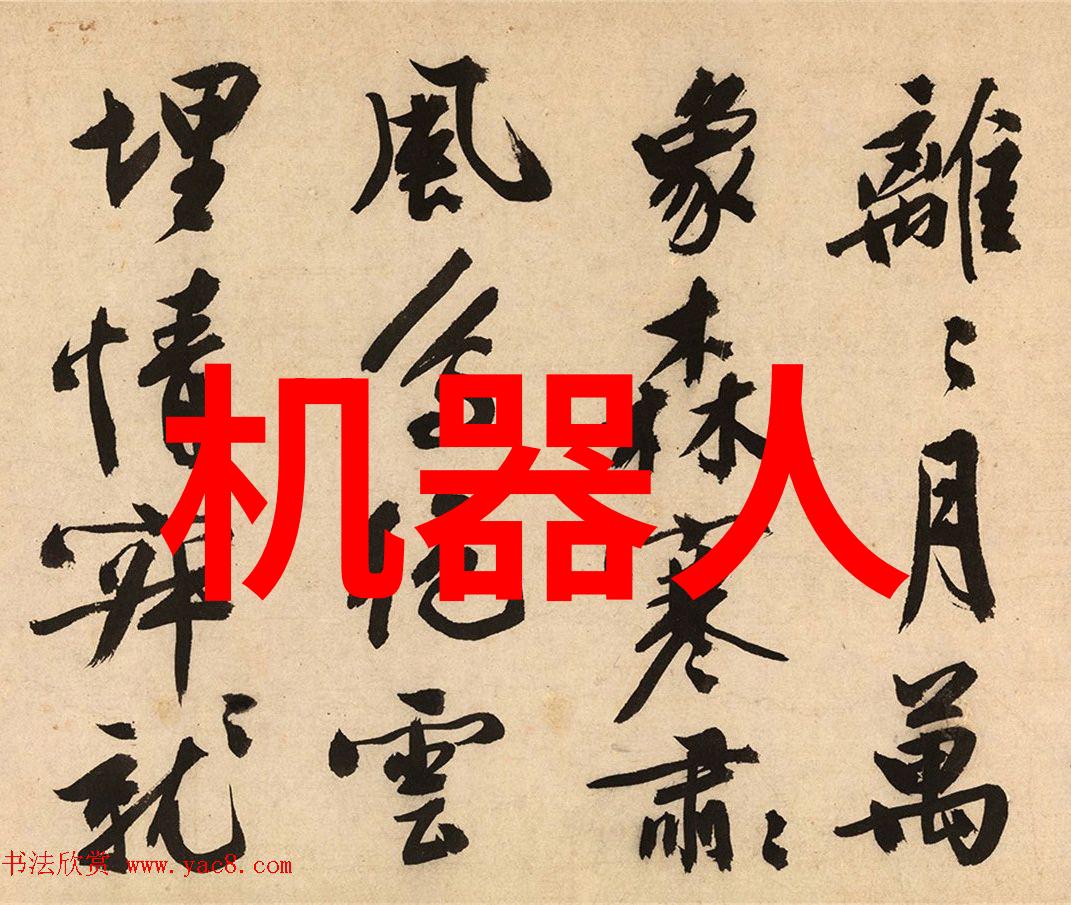 離〻月萬
象森寒肅〻
風 雲
埋情 就
机器人
书法欣赏 www.yac8.com